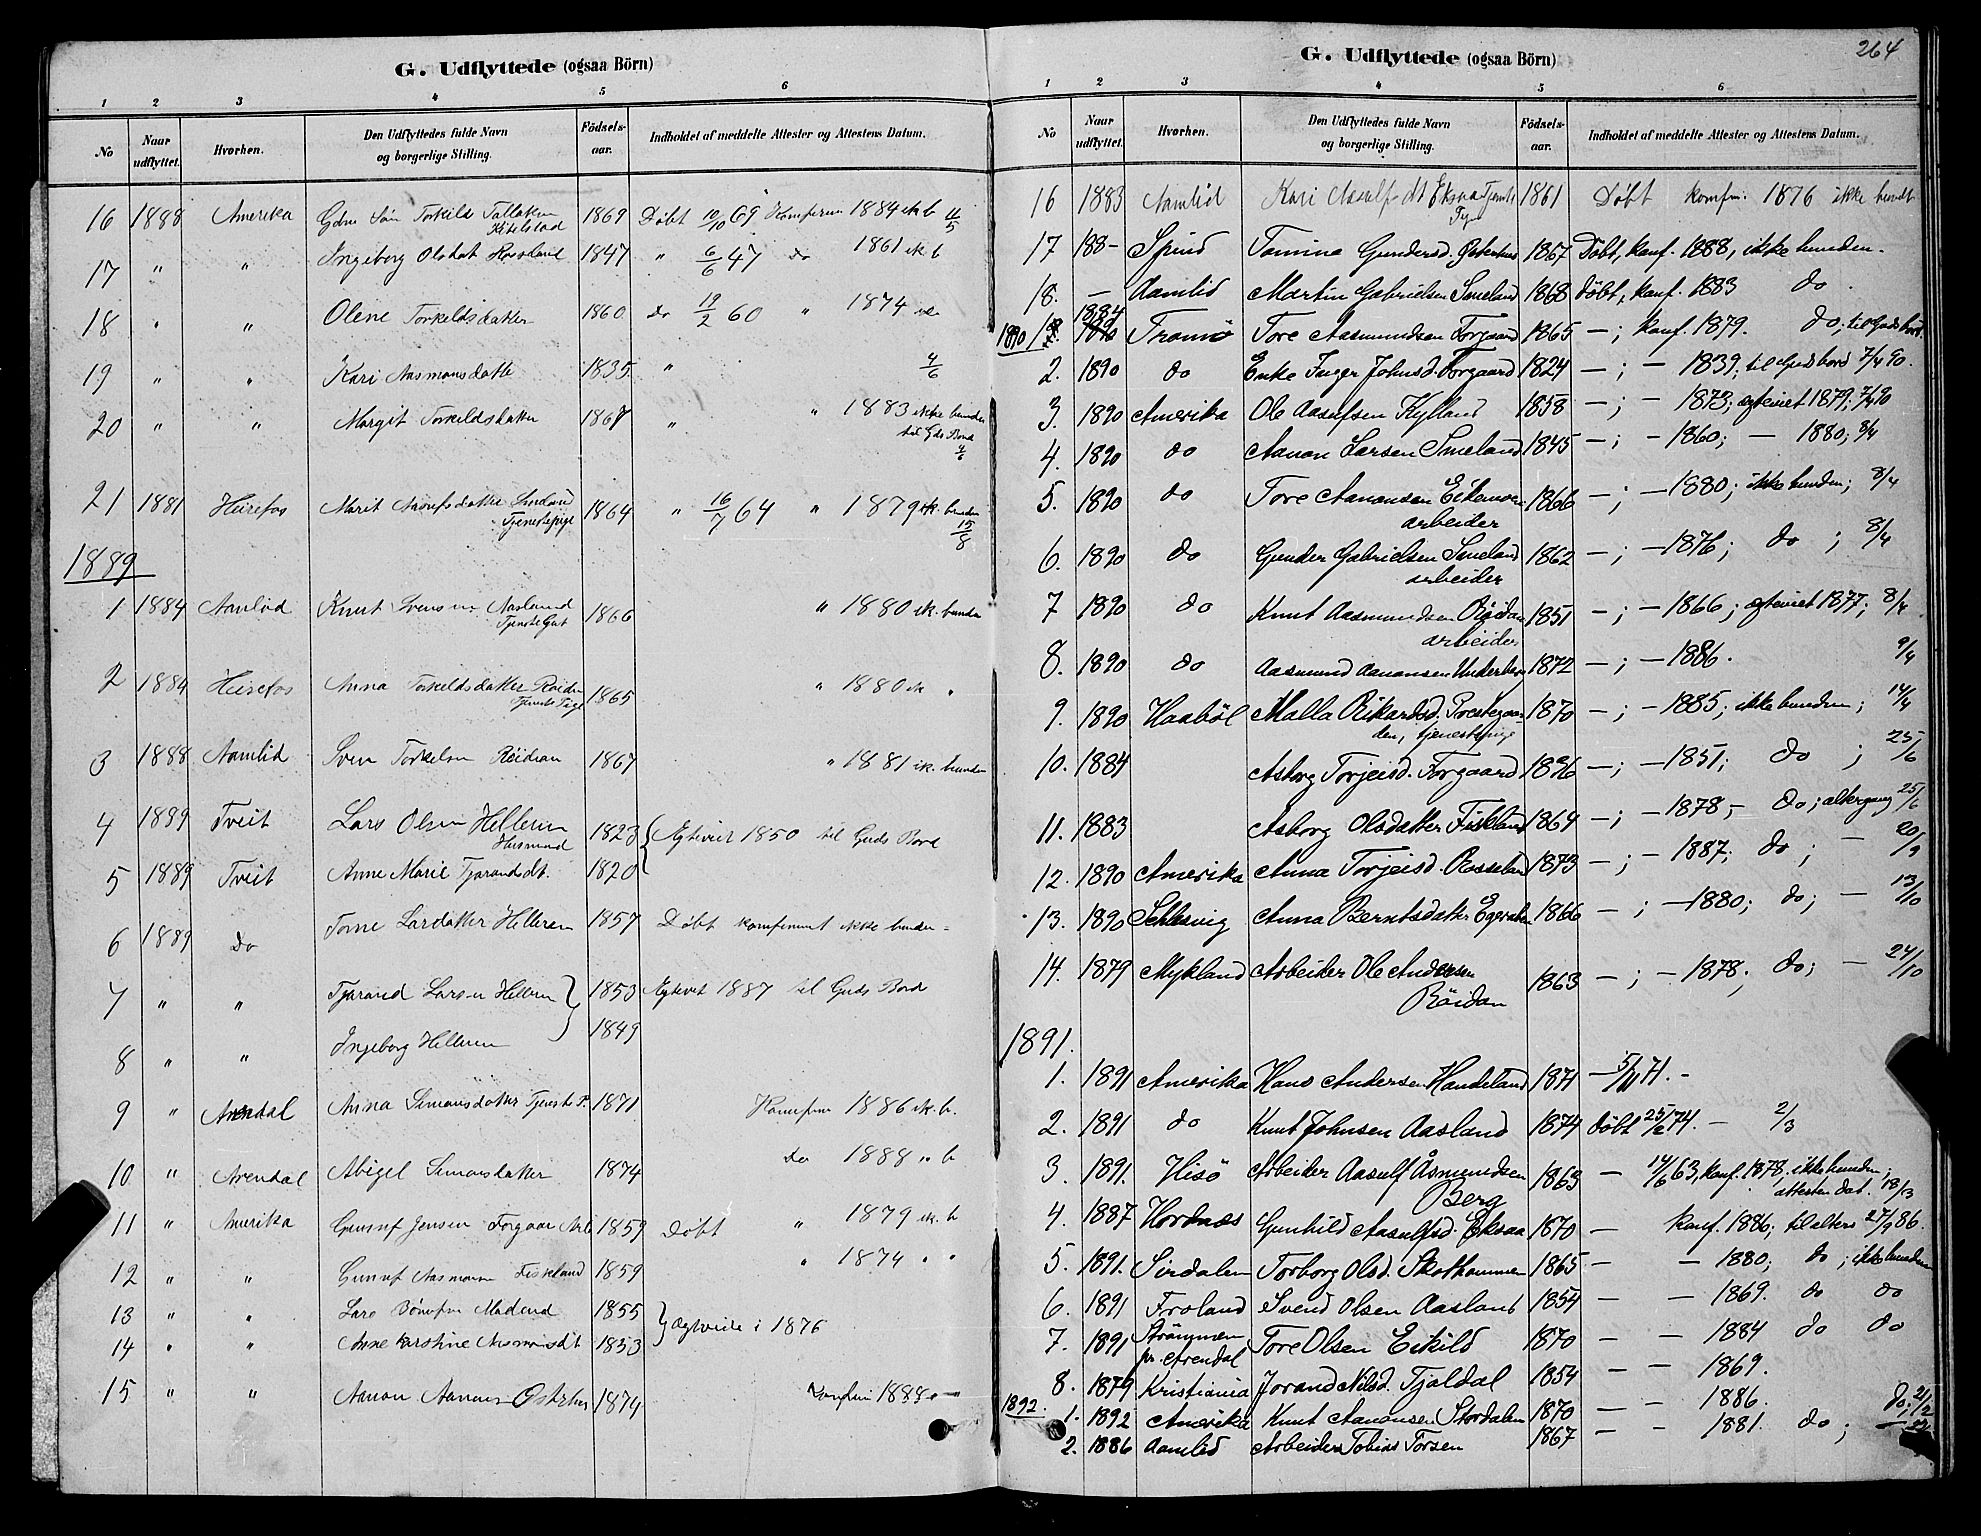 G. Udflyttede (ogsaa Börn)
1 2 3 4 5 6
No Naar udflyttet. Hvorhen. Den Udflyttedes fulde Navn og borgerlige Stilling. Födsels-aar. Indholdet af meddelte Attester og Attestens Datum.
16 1888 Amerika Torkild Tallaksen 1869 Döbt 10/10 69 1884 ik b
17 " " Ingeborg Olsdat 1847 " 6/6 47 do 1861 ik b
18 " " Olene Torkeldsdatter 1860 do 19/2 60 " 1874
19 " " Kari Aasmonsdatte 1835 " 4/6
20 " " Margit Torkildsdatter 1867 " " 1883 ikke bunden
til Gds Bord
4/6
21 1881 Hirefos Marit 1864 " 16/7 64 " 1879 ik. bunden
Tjenestepige 15/8
1889
1 1884 Aamlid Knut Svensen Aasland 1866 " 1880 ik. bunden
Tjeneste Gut
2 1884 Hirefos Anna Torkeldsdatter Roidn 1865 " 1880 ik "
Tjeneste Pige
3 1888 Aamlid Sven Torkelsen Röidan 1867 " 1881 ik. bunden
4 1889 Tveit Lars Olsen Helleren 1823 Egteviet 1850 til Guds Bord
Husmand
5 1889 Tveit Anne Marie Tjarandsdt. 1820
6 1889 Do Tone Larsdatter Helleren 1857 Döbt konfirmert ikke bunden
7 " " Tjarand Larsen Helleren 1853 Egtevet 1887 til Guds Bord
8 " " Ingeborg Helleren 1849
9 " Arendal Anna Simonsdatter Tjeneste P. 1871 Konfirm 1886 ik. b.
10 " Arendal Abigel Simonsdatter 1874 Do 1888 " b
11 " Amerika Jensen Forgaar 1859 Döbt " 1879 ik. b
12 " " Aasmonsen Fiskland 1859 " 1874 " "
13 " " Lars 1855 Ægtviede i 1876
14 " " Anne Karstine 1853
15 " " Aanon Aanonsen Osterhus 1874 Konfirm 1888
G. Udflyttede (ogsaa Börn) 264
1 2 3 4 5 6
No Naar udflyttet. Hvorhen. Den Udflyttedes fulde Navn og borgerlige Stilling. Födsels-aar. Indholdet af meddelte Attester og Attestens Datum.
16 1883 Aamlid Kari 1861 Döbt konfm. 1876 ikke bundet
17 188- Spind Tomina Gundersd. Østerhus 1867 Döbt, konf. 1888, ikke bunden.
18. — Aamlid Martin Gabrielsen Smeland 1868 Döbt, konf. 1883 do.
1884
1890 1. Tromö Tore Aasmundsen Forgaard 1865 —; konf. 1879. do; til Guds bord.
2. 1890 do Enke Inger Johnsd. Forgaard 1824 —; — 1839; til Guds bord 7/4 90.
3. 1890 Amerika Ole Aasulfsen Kylland 1858 —; — 1873; egteviet 1879; 7/4 90
4. 1890 do Aanon Larsen Smeland 1845 —; — 1860; — 1880; 8/4
5. 1890 do Tore Aanonsen Eikemoen 1866 —; — 1880; ikke bunden; 8/4
arbeider
6. 1890 do Gunder Gabrielsen Smeland 1862 —; — 1876; do; 8/4
arbeider
7 1890 do Knut Aasmundsen Röidan 1851 —; — 1866; egteviet 1877; 8/4
arbeider
8. 1890 do Aasmund Aanonsen Underberg 1872 —; — 1886. 9/4
9. 1890 Haaböl Malla Rikardsd. Prestegaar- 1870 —; — 1885; ikke bunden; 14/4
den, tjenestepige
10. 1884 Asborg Torjeisd. Forgaard 1836 —; — 1851; do; 25/6
11. 1883 Asborg Olsdatter Fiskland 1864 —; — 1878 — do; altergang 25/6
12. 1890 Amerika Anna Torjeisd. Rosseland 1873 —; — 1887; do; — 20/9
13. 1890 Schlesvig Anna Berntsdatter 1866 —; — 1880; do; — 13/10
14. 1879 Mykland Arbeider Ole Andersen 1863 —; — 1878; do; — 24/10
Röidan
1891.
1. 1891 Amerika Hans Andersen Handeland 1871 — 5/11 71. -
2. 1891 do Knut Johnsen Aasland 1874 döbt 25/2 74. — 2/3
3. 1891. Hisö Arbeider Aasulf Åsmundsen 1863 — 14/6 63, konf. 1878, ikke bunden;
Berg attesten dat. 18/3
4. 1887 Hordnæs Gunhild Aasulfsd. Eksaa 1870 — konf. 1886; til alters 27/9 86.
5. 1891. Sirdalen Torborg Olsd. Skothommen 1865 — — 1880; do; ikke bunden
6. 1891 Froland Svend Olsen Aasland 1854 — — 1869. do do
7. 1891 Strömmen pr. Arendal Tore Olsen Eikild 1870 — — 1884 do do
8. 1879 Kristiania Jorand Nilsd. Tjaldal 1854 — — 1869.
1892. 1. 1892 Amerika Knut Aanonsen Stordalen 1870 — — 1886. do;
2. 1886 Aamlid Arbeider Tobias Torsen 1867 — — 1881. do;